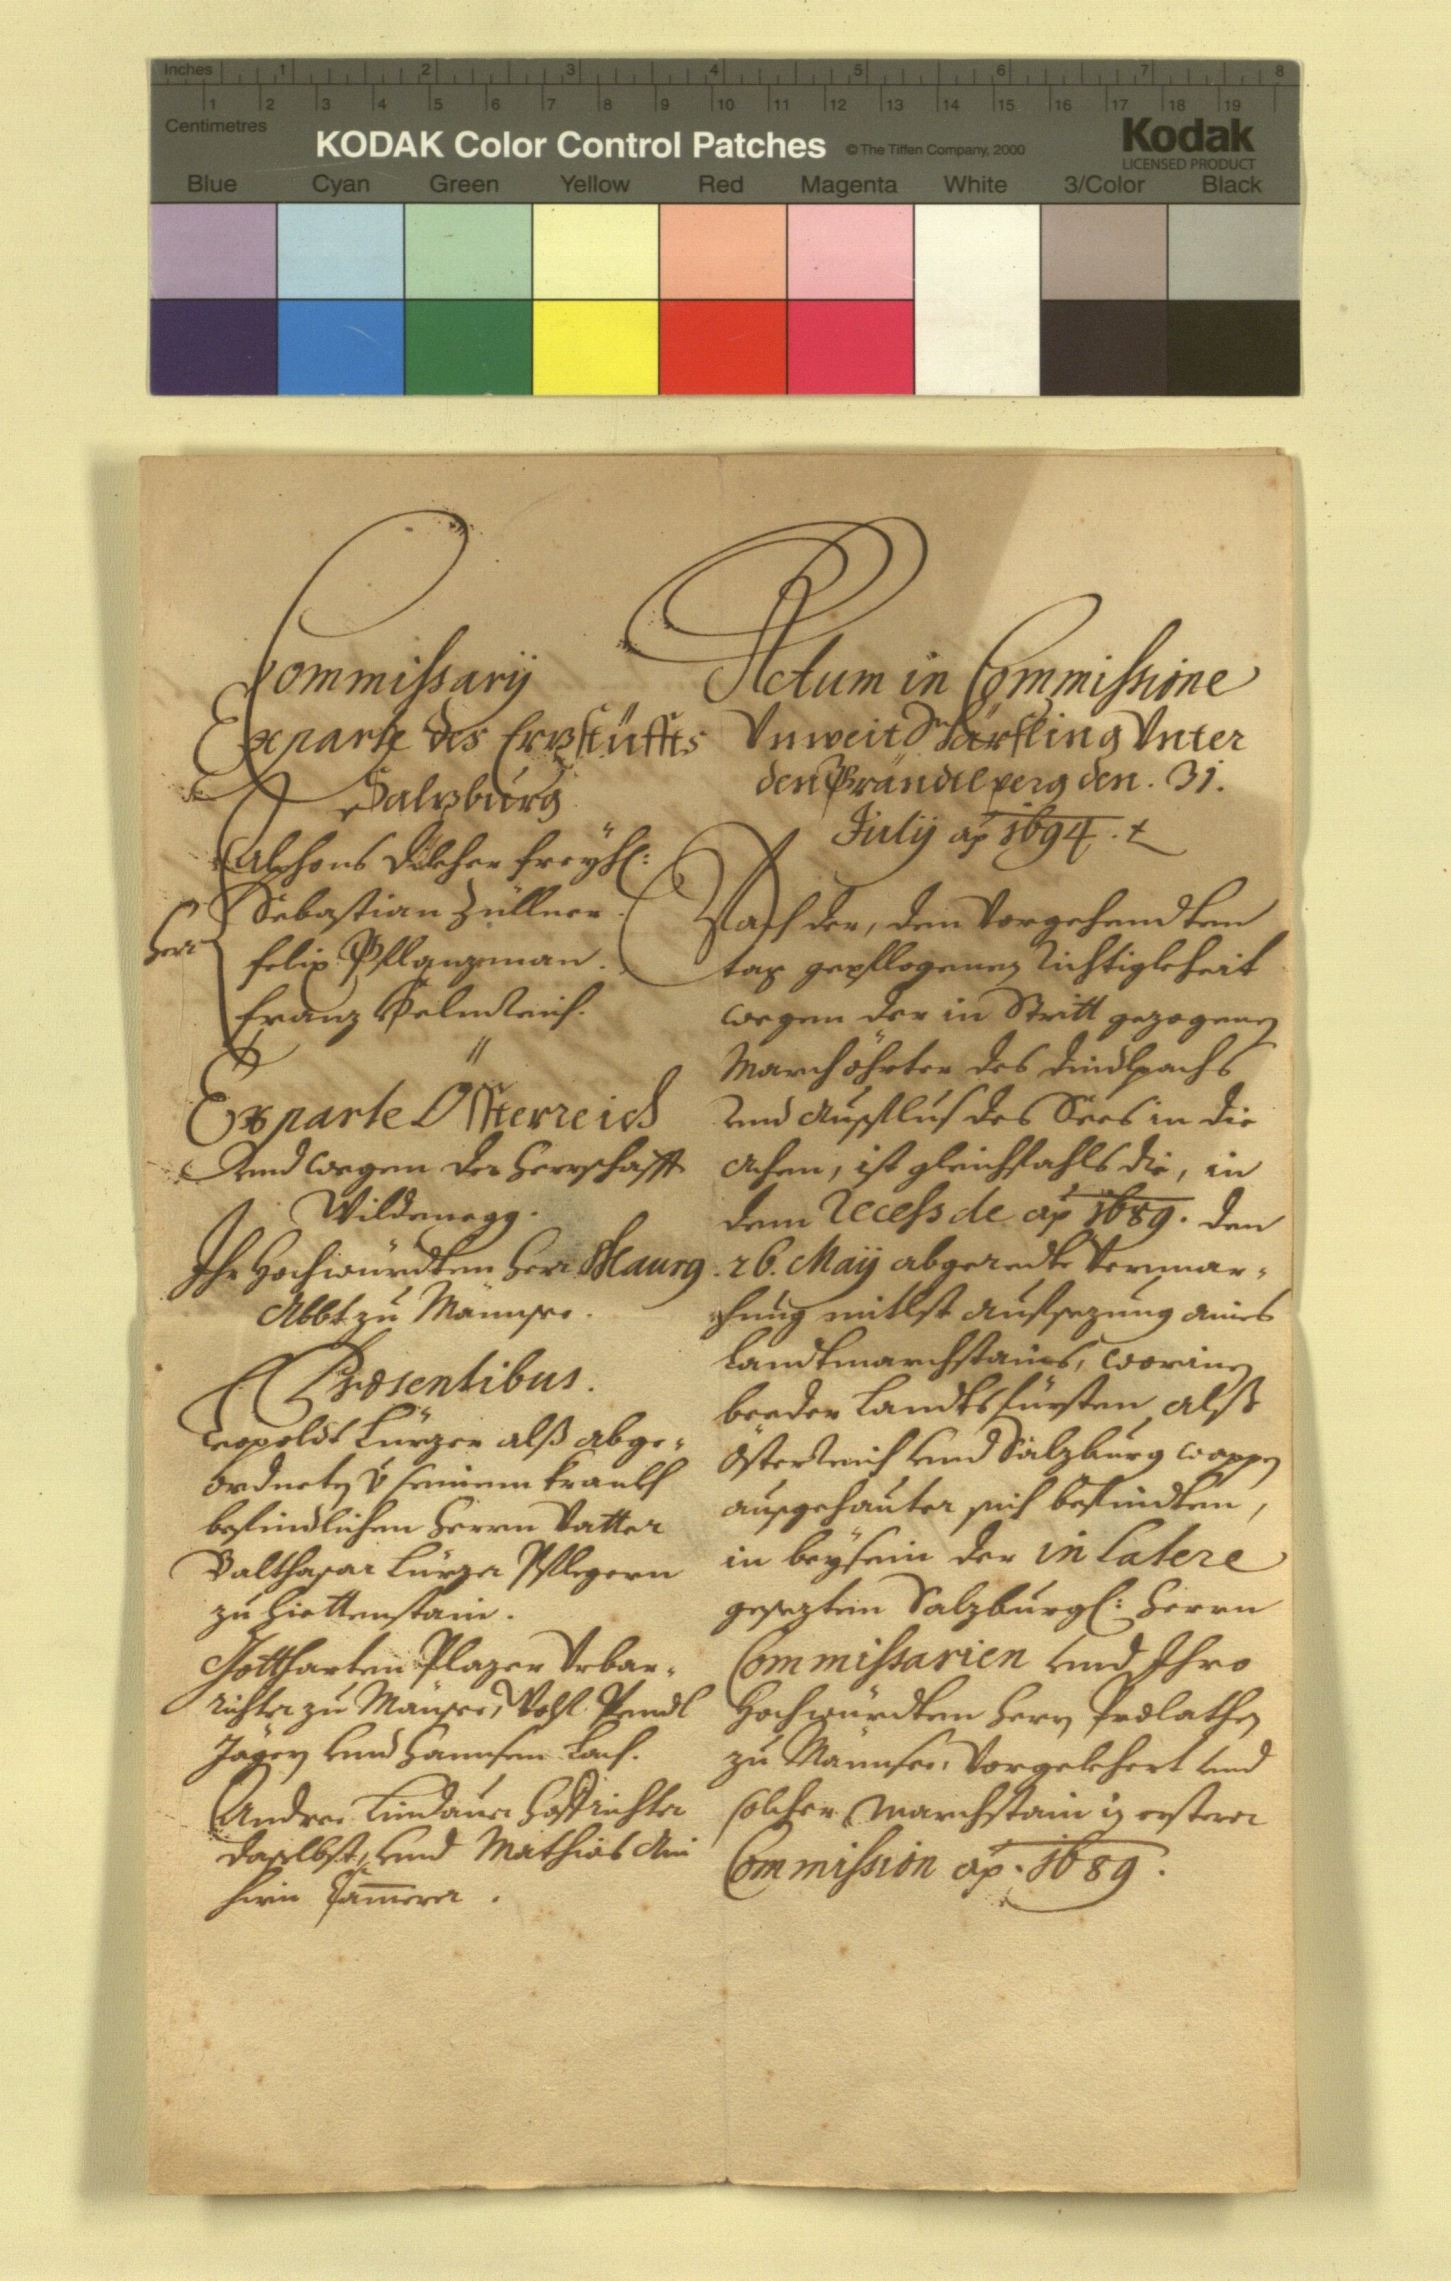 Inches 1 2 3 4 5 6 7 8
1 2 3 4 5 6 7 8 9 10 11 12 13 14 15 16 17 18 19
Centimetres
KODAK Color Control Patches © The Tiffen Company, 2000 Kodak
LICENSED PRODUCT
Blue Cyan Green Yellow Red Magenta White 3/Color Black
Commissarÿ
Ex parte des Erzstüffts
Salzburg
Alphons Dücher freyh:
Sebastian Züllner.
Herr
felix Pflanzman.
franz
Ex parte Össterreich
vnd wegen der Herrschafft
Wildenegg.
Ihr Hochwürdten Herr Maurg
Abbt zu Männsee.
Præsentibus.
Leopoldt Lürzer alß abge-
ordneten v seinem kranckh
befindlichen Herrn Vatter
Balthasar Lürzer Pflegern
zu Hiettenstain.
Gottharten Plazer Vrbar-
richter zu Männsee, Wolf
Jäger vnd Hannsen
Andree Lindauer Hoffrichter
daselbst, vnd Mathias
Actum in Commissione
Vnweit Vnter
den den. 31.
Julÿ aō 1694.
Nach der, dem Vorgehendten
tag gepflogenen Richtigkheit
wegen der in Stritt gezogenen
Marchöhrter des Dindlpachs
vnd Außflus des Sees in die
Achen, ist gleichfahls die, in
dem Recess de aō 1689. den
26. Maÿ abgeredte Vermar-
chung mitlst aufsezung aines
Landtmarchstains, worinen
beeder Landtsfürsten alß
Össterreich vnd Salzburg wappen
außgehauter sich befindten,
in beysein der in Latere
gesezten Salzburgl: Herrn
Commissarien vnd Ihro
Hochwürdten Herrn Prælathen
zu Männsee, Vorgekhert vnd
solcher Marchstain in ersterer
Commission aō. 1689.